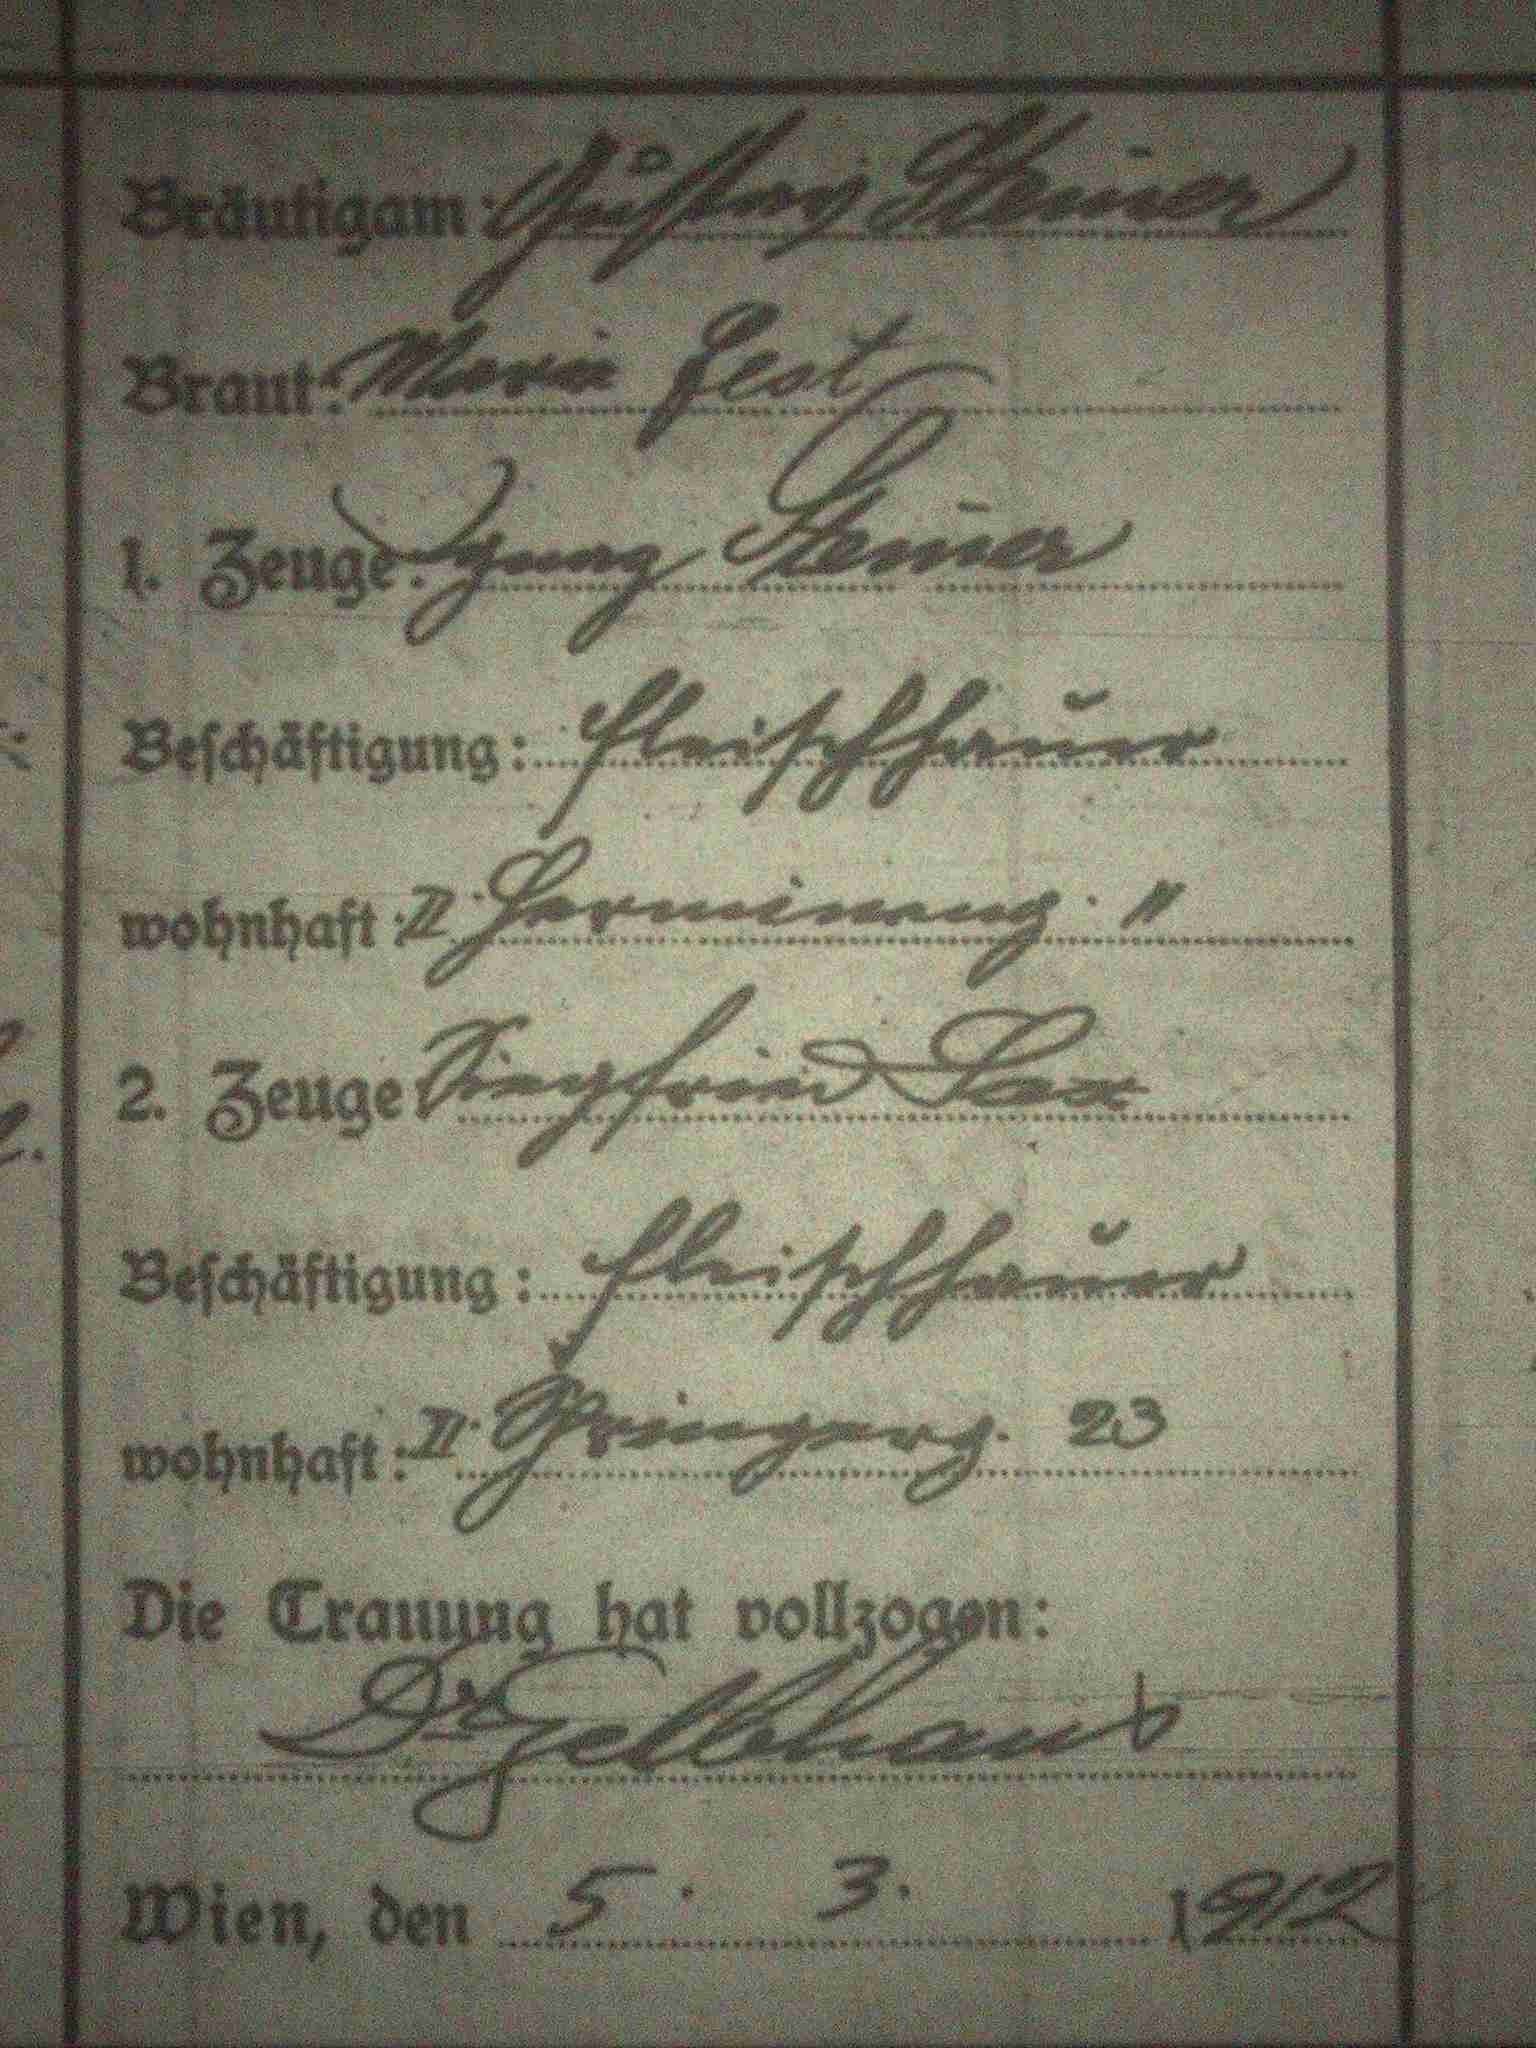 Bräutigam: Gustav Steiner
Braut: Maria Fest
1. Zeuge: Ignaz Steiner
Beschäftigung: Fleischhauer
wohnhaft: II. Hermineng. 11
2. Zeuge Siegfried Sax
Beschäftigung: Fleischhauer
wohnhaft: II. Springerg. 23
Die Trauung hat vollzogen:
Dr Gelbhaus
Wien, den 5. 3. 1912